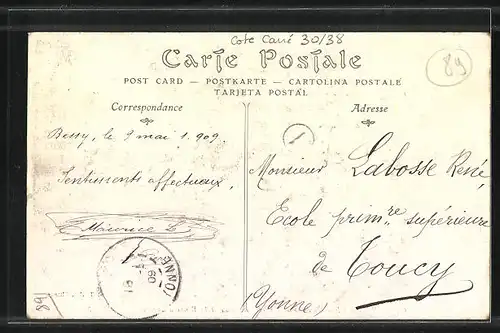 Cote Carré 30/38
Carte Postale
89
POST CARD — POSTKARTE — CARTOLINA POSTALE
TARJETA POSTAL
Correspondance
Adresse
Bessy, le 9 mai 1909.
Sentiments affectueux,
Maurice L
1
Monsieur Labosse René,
Ecole prim.re supérieure
de Toucy
(Yonne)
YONNE
89